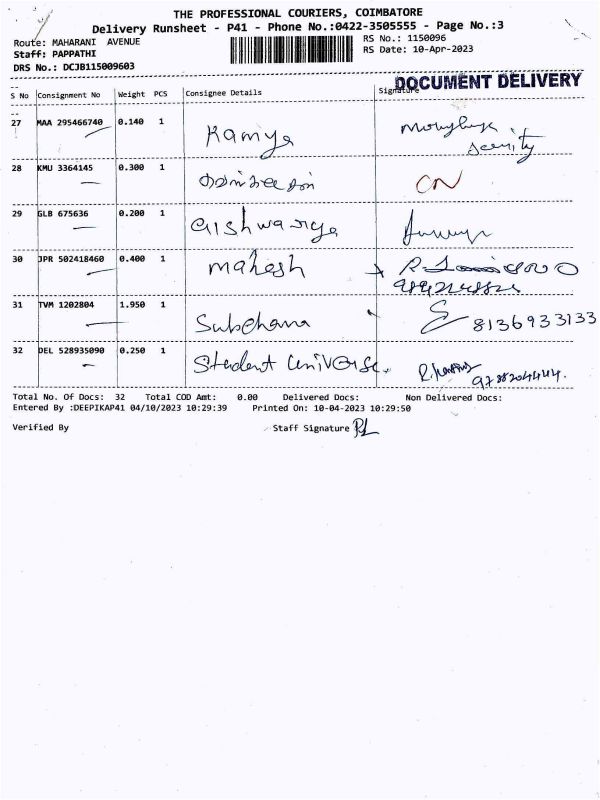 THE PROFESSIONAL COURIERS, COIMBATORE
Delivery Runsheet - P41 - Phone No.:0422-3505555 - Page No.:3
Route: MAHARANI AVENUE
RS No.: 1150096
Staff: PAPPATHI
RS Date: 10-Apr-2023
DRS No.: DCJB115009603
DOCUMENT DELIVERY
S No Consignment No Weight PCS Consignee Details Signature
27 MAA 295466740 0.140 1 Ramya
28 KMU 3364145 0.300 1 CN
29 GLB 675636 0.200 1 aishwarya
30 JPR 502418460 0.400 1 mahesh
31 TVM 1202804 1.950 1 Subehana 8136933133
32 DEL 528935090 0.250 1 Student universe.
Total No. Of Docs: 32 Total COD Amt: 0.00 Delivered Docs: Non Delivered Docs:
Entered By :DEEPIKAP41 04/10/2023 10:29:39 Printed On: 10-04-2023 10:29:50
Verified By Staff Signature